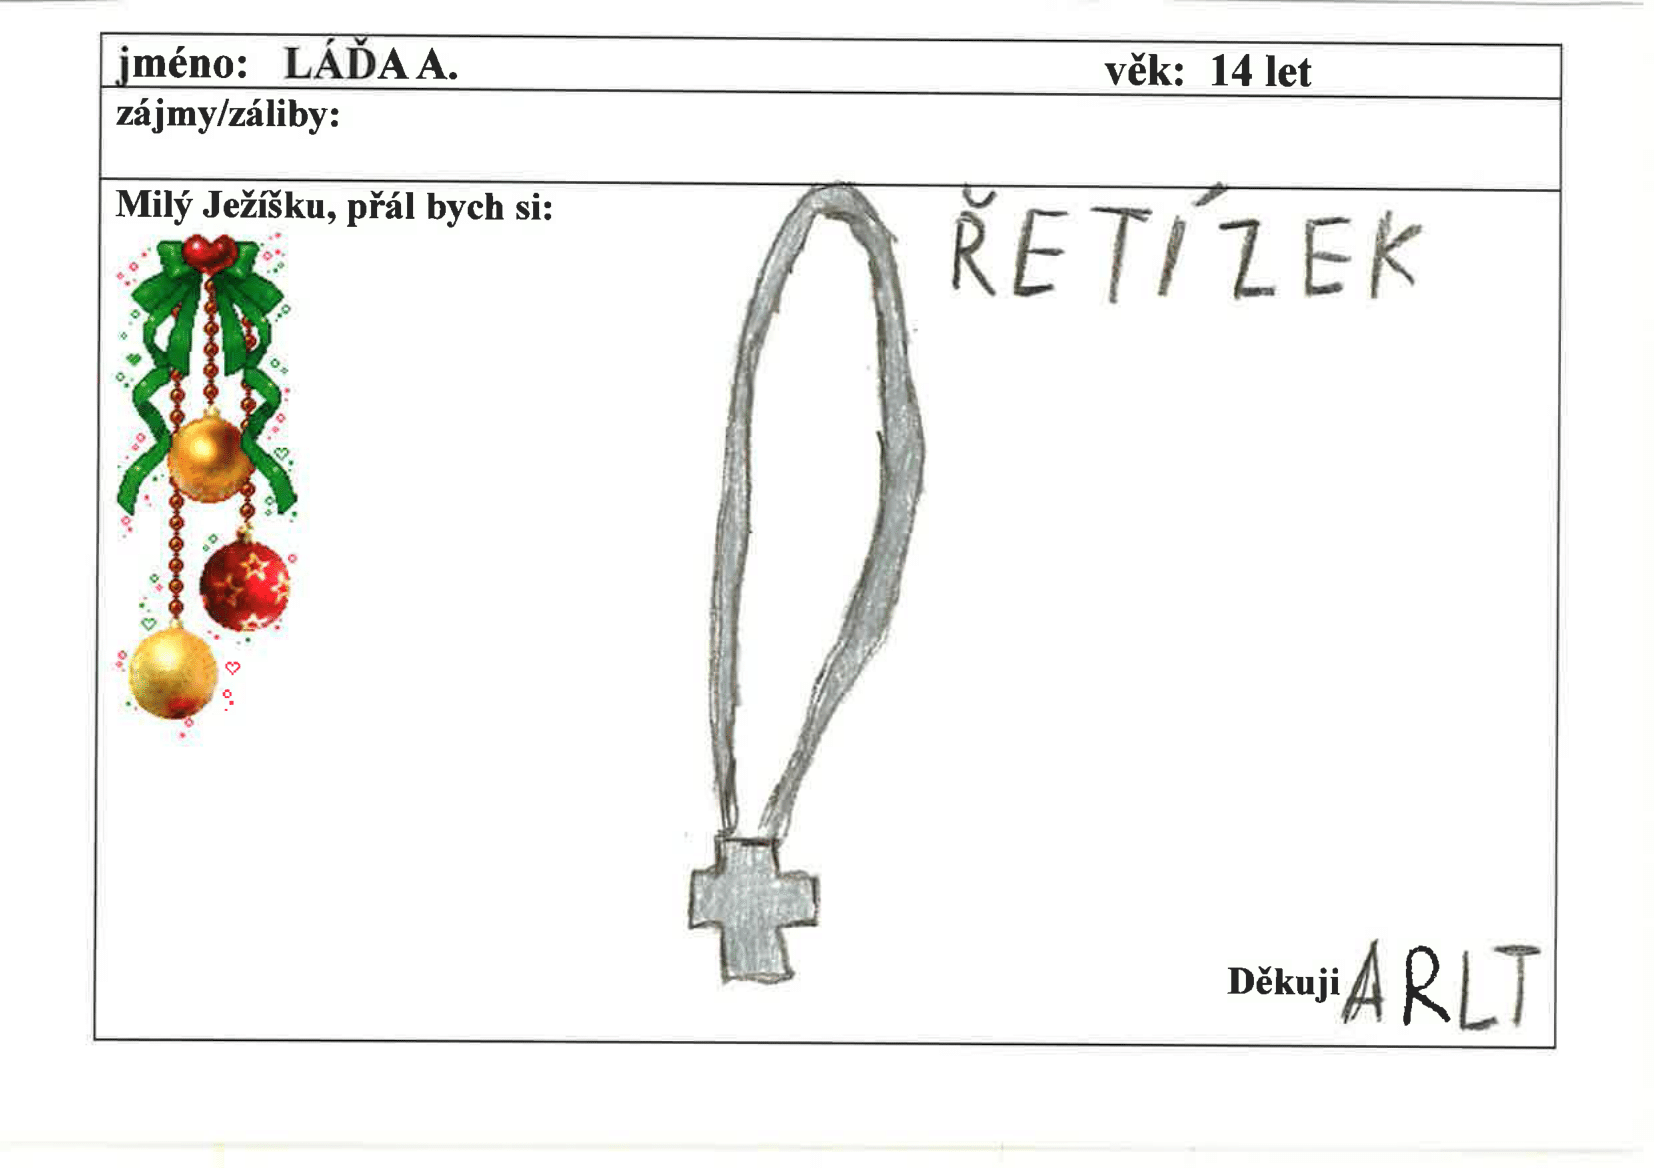 jméno: LÁĎA A. věk: 14 let
zájmy/záliby:
Milý Ježíšku, přál bych si:
ŘETÍZEK
Děkuji ARLT